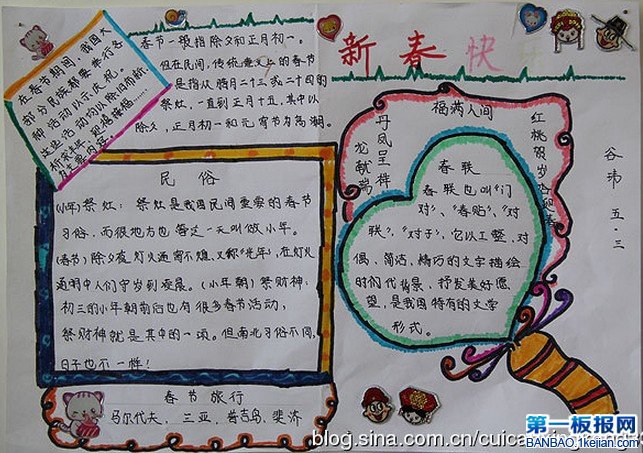 新春快乐
在春节期间，我国大
部分民族都要举行各
种活动以示庆祝。
这些活动均以祭祀神佛、
为主要内容。
春节一般指除夕和正月初一。
但在民间，传统意义上的春节
是指从腊月二十三或二十四的
祭灶，一直到正月十五，其中以
除夕，正月初一和元宵节为高潮。
民俗
(小年)祭灶：祭灶是我国民间重要的春节
习俗，而很地方也等这一天叫做小年。
(春节)除夕夜灯火通宵不熄，又称"光年"，在灯火
通明中人们守岁到凌晨。（小年朝）祭财神：
初三的小年朝前后也有很多春节活动，
祭财神就是其中的一项。但南北习俗不同，
日子也不一样！
春节旅行
马尔代夫，三亚，普吉岛，斐济
福满人间
丹凤呈祥
龙献瑞
红桃贺岁
春联
春联也叫"门
对"、"春贴"、"对
联"、"对子"，它以工整、对
偶、简洁、精巧的文字描绘
时代背景，抒发美好愿
望，是我国特有的文学
形式。
谷玮 五·三
blog.sina.com.cn/cuica
第一板报网
BANBAO.1kejian.com